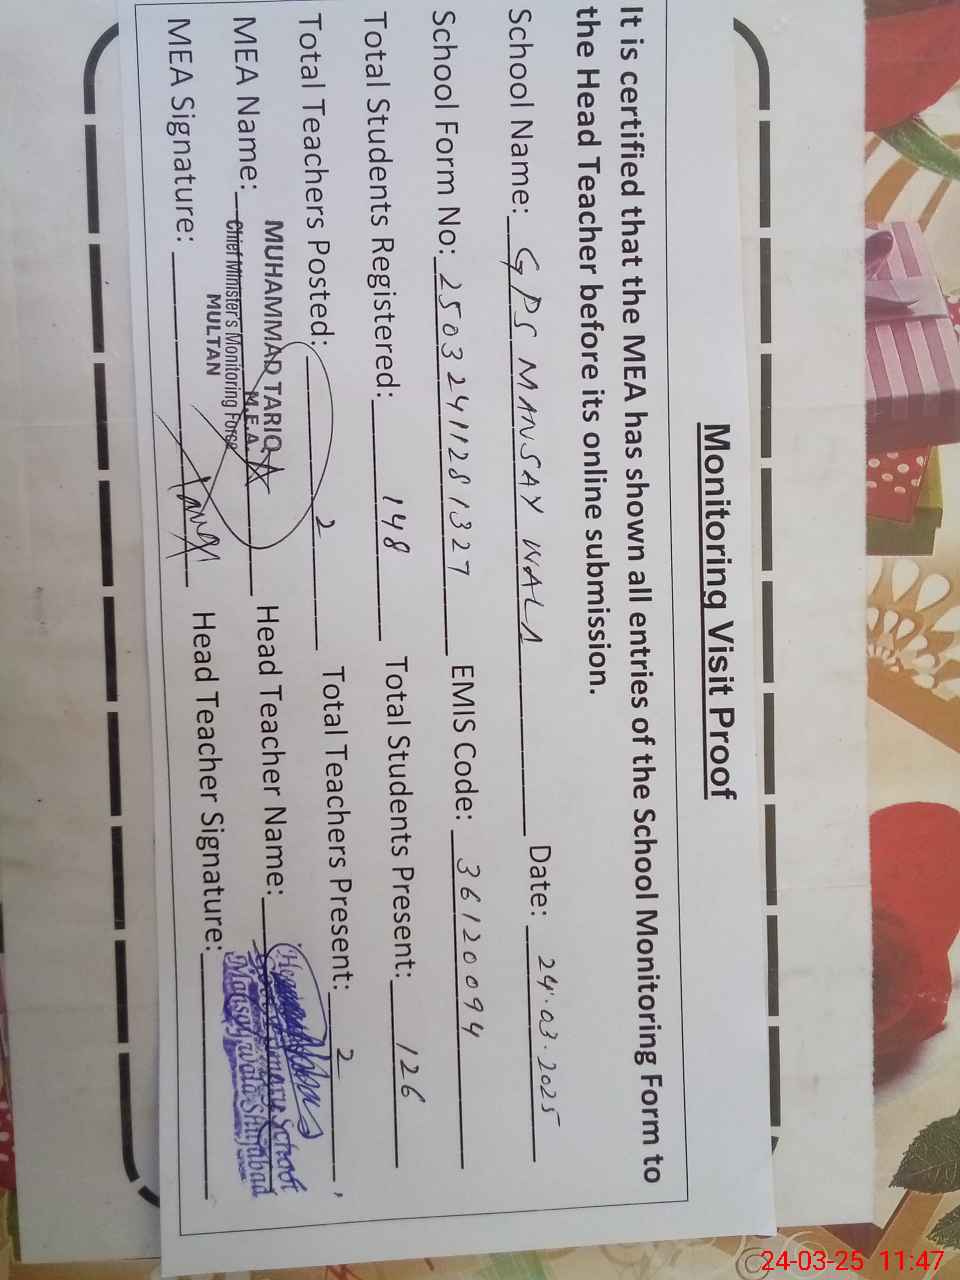 Monitoring Visit Proof
It is certified that the MEA has shown all entries of the School Monitoring Form to
the Head Teacher before its online submission.
School Name: GPS MANSAY WALA Date: 24.03.2025
School Form No: 25032411281327 EMIS Code: 36120094
Total Students Registered: 148 Total Students Present: 126
Total Teachers Posted: 2 Total Teachers Present: 2
MEA Name: MUHAMMAD TARIQ Head Teacher Name:
M.E.A
Chief Minister's Monitoring Force
MULTAN
MEA Signature: Head Teacher Signature:
Primary School
Shujabad
24-03-25 11:47